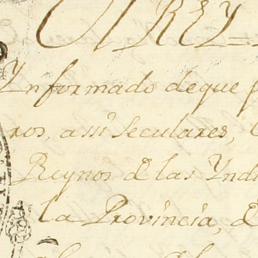 El REY =
Informado de que p
ros, assi Seculares, 
Reynos de las Indi
la Provincia, d